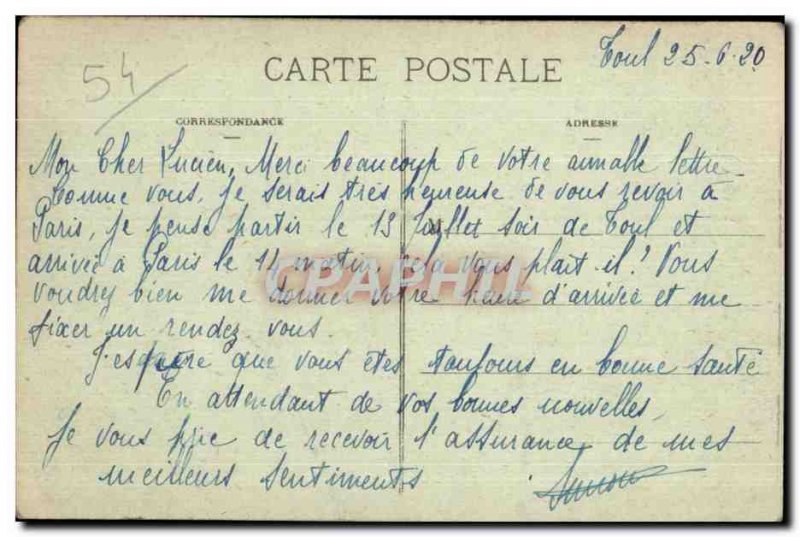 Toul 25.6.20
54
CARTE POSTALE
CORRESPONDANCE
ADRESSE
Mon Cher Lucien, Merci beaucoup de votre aimable lettre
Comme vous, je serais très heureuse de vous revoir à
Paris, je pense partir le 13 Juillet soir de Toul et
arrivée à Paris le 14 matin cela vous plait il? Vous
voudrez bien me donner votre heure d'arrivée et me
fixer un rendez vous.
J'espère que vous êtes toujours en bonne santé
En attendant de vos bonnes nouvelles,
Je vous prie de recevoir l'assurance de mes
meilleurs sentiments
CPAPHIL